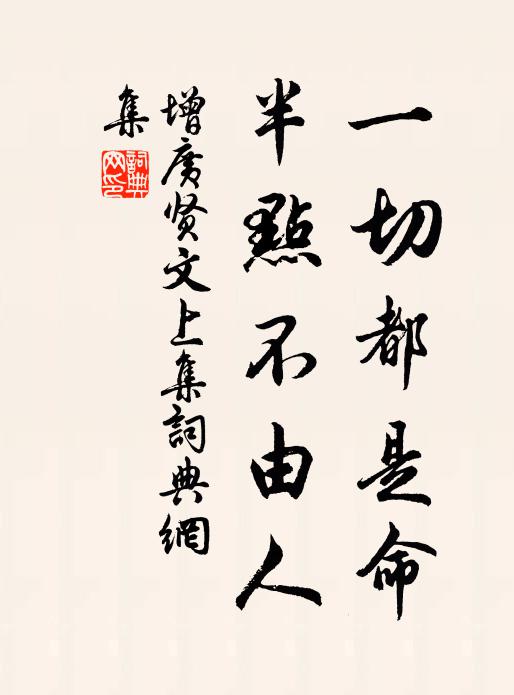 一切都是命
半點不由人
增广贤文上集詞典網
集
詞典
网印